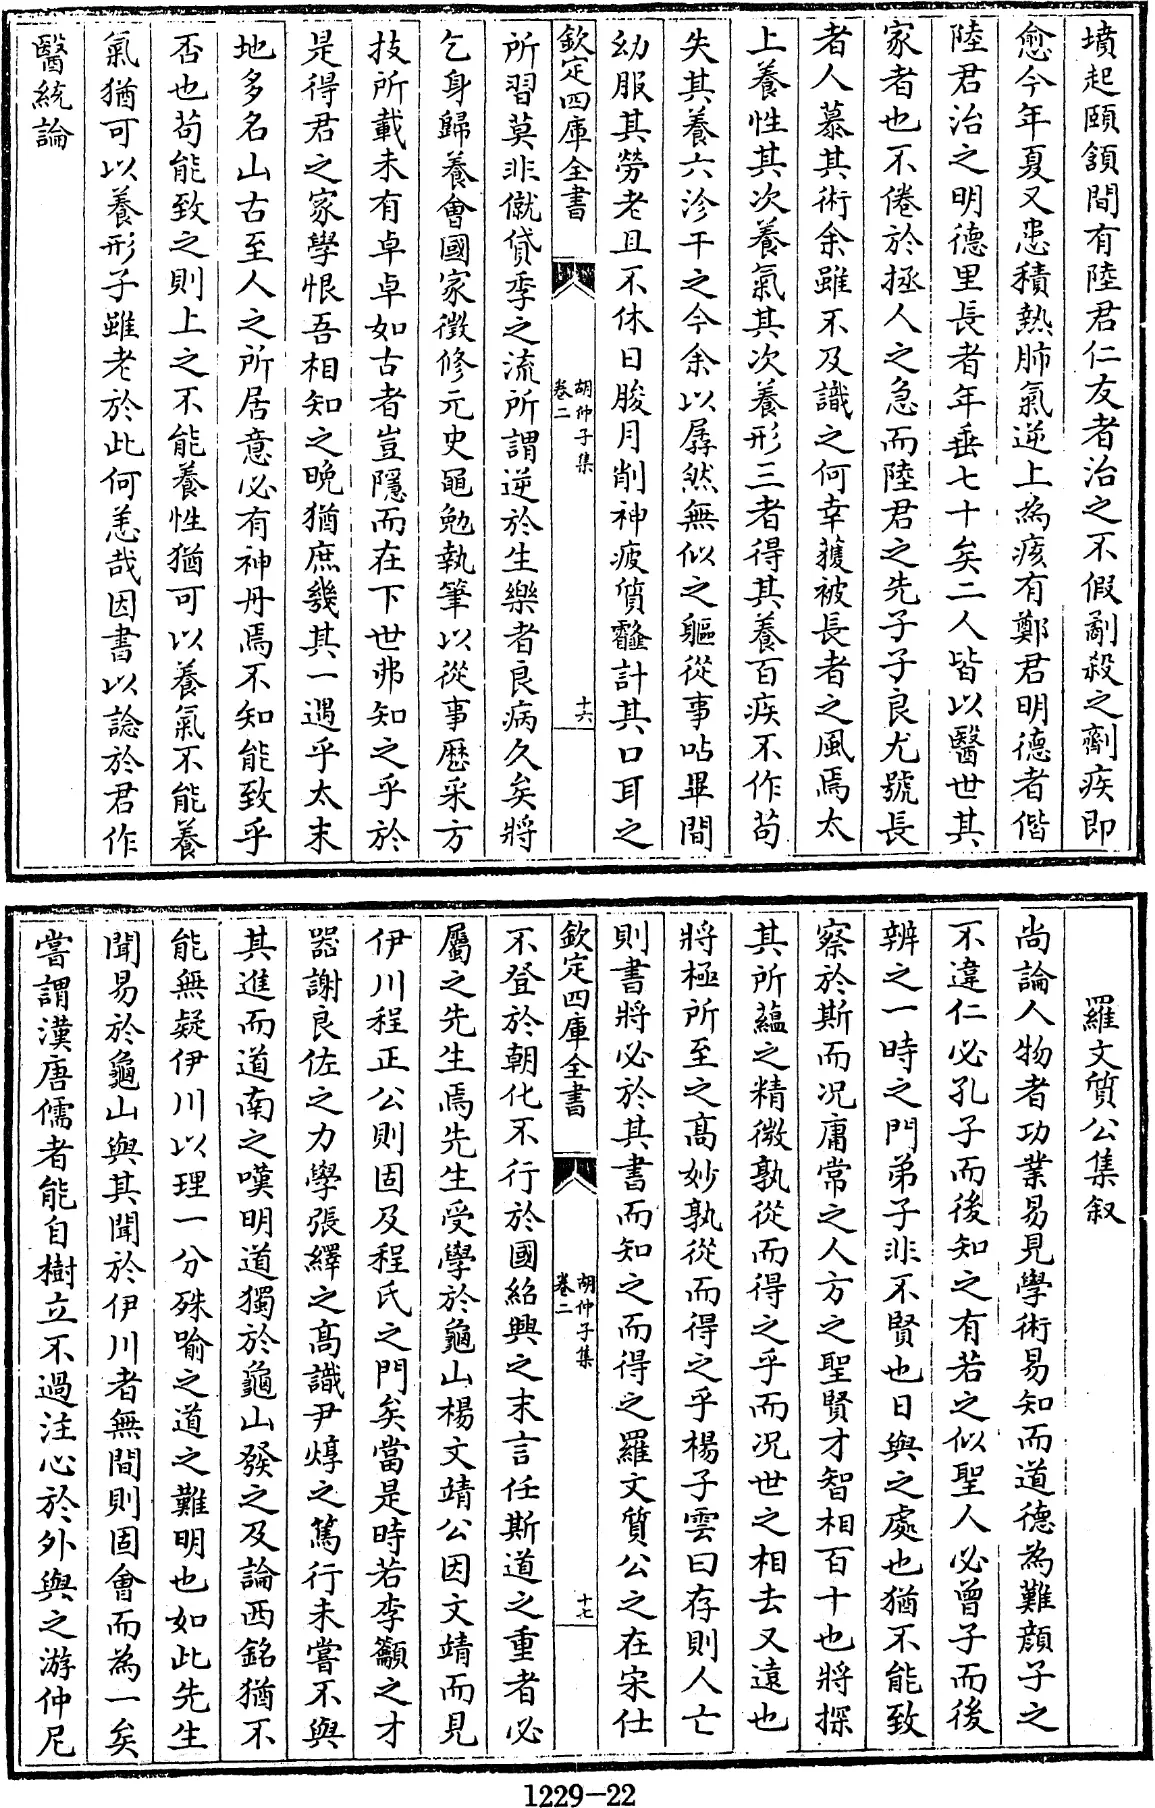 墳起頤頷間有陸君仁友者治之不假劀殺之劑疾即
愈今年夏又患積熱肺氣逆上為痎有鄭君明德者偕
陸君治之明德里長者年垂七十矣二人皆以醫世其
家者也不倦於拯人之急而陸君之先子子良尤號長
者人慕其術余雖不及識之何幸獲被長者之風焉太
上養性其次養氣其次養形三者得其養百疾不作茍
失其養六沴干之今余以孱然無似之軀從事呫畢間
幼服其勞老且不休日朘月削神疲質齾計其口耳之
欽定四庫全書
胡仲子集
卷二
十六
所習莫非僦貸季之流所謂逆於生樂者良病久矣將
乞身歸養會國家徴修元史黽勉執筆以從事歴采方
技所載未有卓卓如古者豈隱而在下世弗知之乎於
是得君之家學恨吾相知之晚猶庶幾其一遇乎太末
地多名山古至人之所居意必有神丹焉不知能致乎
否也茍能致之則上之不能養性猶可以養氣不能養
氣猶可以養形子雖老於此何恙哉因書以諗於君作
醫統論
羅文質公集叙
尚論人物者功業易見學術易知而道德為難顔子之
不違仁必孔子而後知之有若之似聖人必曾子而後
辨之一時之門弟子非不賢也日與之處也猶不能致
察於斯而况庸常之人方之聖賢才智相百十也將探
其所藴之精微孰從而得之乎而况世之相去又遠也
將極所至之髙妙孰從而得之乎楊子雲曰存則人亡
則書將必於其書而知之而得之羅文質公之在宋仕
欽定四庫全書
胡仲子集
卷二
十七
不登於朝化不行於國紹興之末言任斯道之重者必
屬之先生焉先生受學於龜山楊文靖公因文靖而見
伊川程正公則固及程氏之門矣當是時若李籲之才
器謝良佐之力學張繹之髙識尹焞之篤行未嘗不與
其進而道南之嘆明道獨於龜山發之及論西銘猶不
能無疑伊川以理一分殊喻之道之難明也如此先生
聞易於龜山與其聞於伊川者無間則固會而為一矣
嘗謂漢唐儒者能自樹立不過注心於外與之游仲尼
1229-22